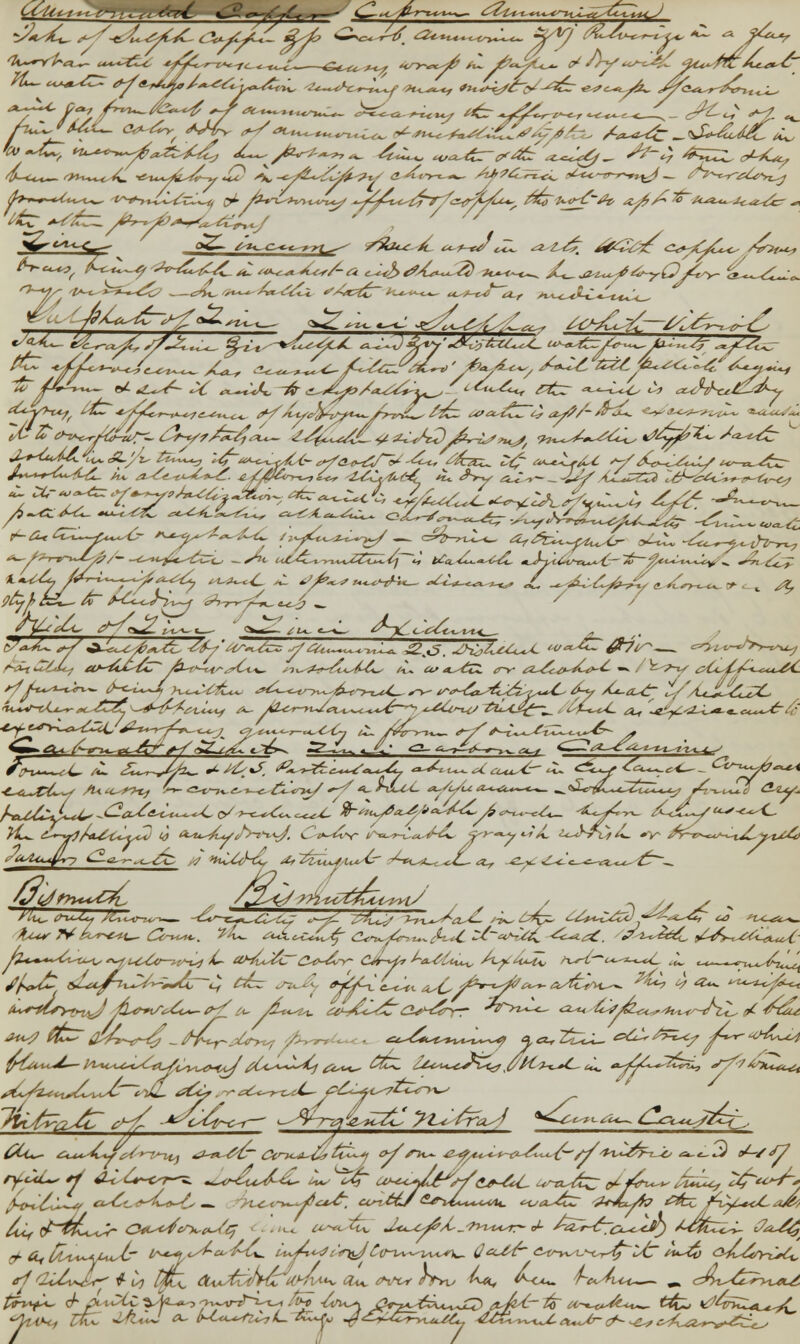 Ammoniated Copper Cuprum Ammoniatum
Take of Sulph Copper ℥ss Carb. Ammonia ʒvj Pulverize in a glass
mortar until effervescence ceases, wrap in paper & dry with gentle heat.
The water of crystallization rendering mass moist & the escape of carbonic
acid gas from Carb of ammonia occasions the effervescence – It is of a
fine blue color, odor of ammonia & metallic styptic taste – Soluble in
water, incompatibles are potassa lime water & the acids – It is tonic & has
been much employed in epilepsy chorea hysteria & worms – Overdoses
produce vomiting & poisonous effects of copper, tho not so apt to nauseate as
the other preparations
Zinc Zincum Much used in arts. With copper forms
brass, being soluble in weakest acids should never be employed for culina
ry vessels – In metallic state never used as medicine
Sulphate of Zinc Zinci Sulphas White Vitriol
Take Scraps of Zinc ℥iv Sulph acid ℥vj Distilled water four pints, after
the effervescence has ceased filter thro' paper, boil till pellicle begins
to form & set it aside to crystallize – Unless the acid is added by
degrees, the effervescence of hydrogen from the water is apt to be excessive causing
it to overflow – Crystals are slender 4 sided prisms, metallic styptic taste
soluble in 2½ times its weight of cold & less than its weight of boiling water
Insoluble in alcohol. effloresces slightly in dry air – If heated it dissolves
in its water of crystallization, the acid is expelled & oxide of zinc is left. Incom
patible with alkalies alkaline carbonates hydrosulphates lime water
& astringent vegetable infusions – Tonic astringent & in large doses
a prompt emetic – In intermittents is valuable adjuvant to quinine – Inter
nally principally used in spasmodic diseases as epilepsy chorea &c. As
styptic to bleeding surfaces –
Oxide of Zinc Zinci Oxidum
Take of Sulpate lbj Water of Ammonia Q.S. Distilled water – Inodorous
tasteless white powder insoluble in water or alcohol – Very difficult
of fusion being neither decomposed or volatilized by heat, if heated
moderately obtains a permanent yellow tint – Used as exsiccant to
excoriated surfaces generally in form of ointment
Carbonate of Zinc Zinci Carbonas Calamine
Found in Europe & U.S. Particularly abundant in England – Compact
earthy masses or concretions of a dull appearance – Sometimes found crys
tallized – Calcined & reduced to impalpable powder before being used
The crystallized is anhydrous. Color variable grayish reddish or brownish yellow
Turners Cerate is mildly astringent & used as exsiccant –
Bismuth Bismuthum
The only known locality of this metal in the United States is near
New Haven Conn. The ancients confounded it with lead. Brittle & brilliant
peculiar yellowish white color crystalline texture not used in uncombined
state, Subnitrate is the only officinal preparation – This is an insipid
inodorous powder of a pure white color – Tonic antispasmodic & black
ens the stools – Overdoses produce alarming gastric distress for which
bland mucilaginous drinks are the remedies. Used in affections of stomach
dependent on disordered digestion
Nitrate of Silver Argenti Nitras Lunar Caustic
An anhydrous salt consisting of one equivalent of nitric acid & 1 of
oxide of silver – Soluble in its weight of cold water & four times its wt of
boiling alcohol – Incompat. with common water soaps the fixed alka
lies & their carbonates lime water sulph – mur & tart. acids & their salts,
& astringent vegetable infusions Common salt converts it into chloride
of silver & is the antidote when an over dose has been taken – Internal
tonic & antispasmodic too long continued apt to weaken the stomach
gives the skin a blackish tinge Externally stimulant & escharotic